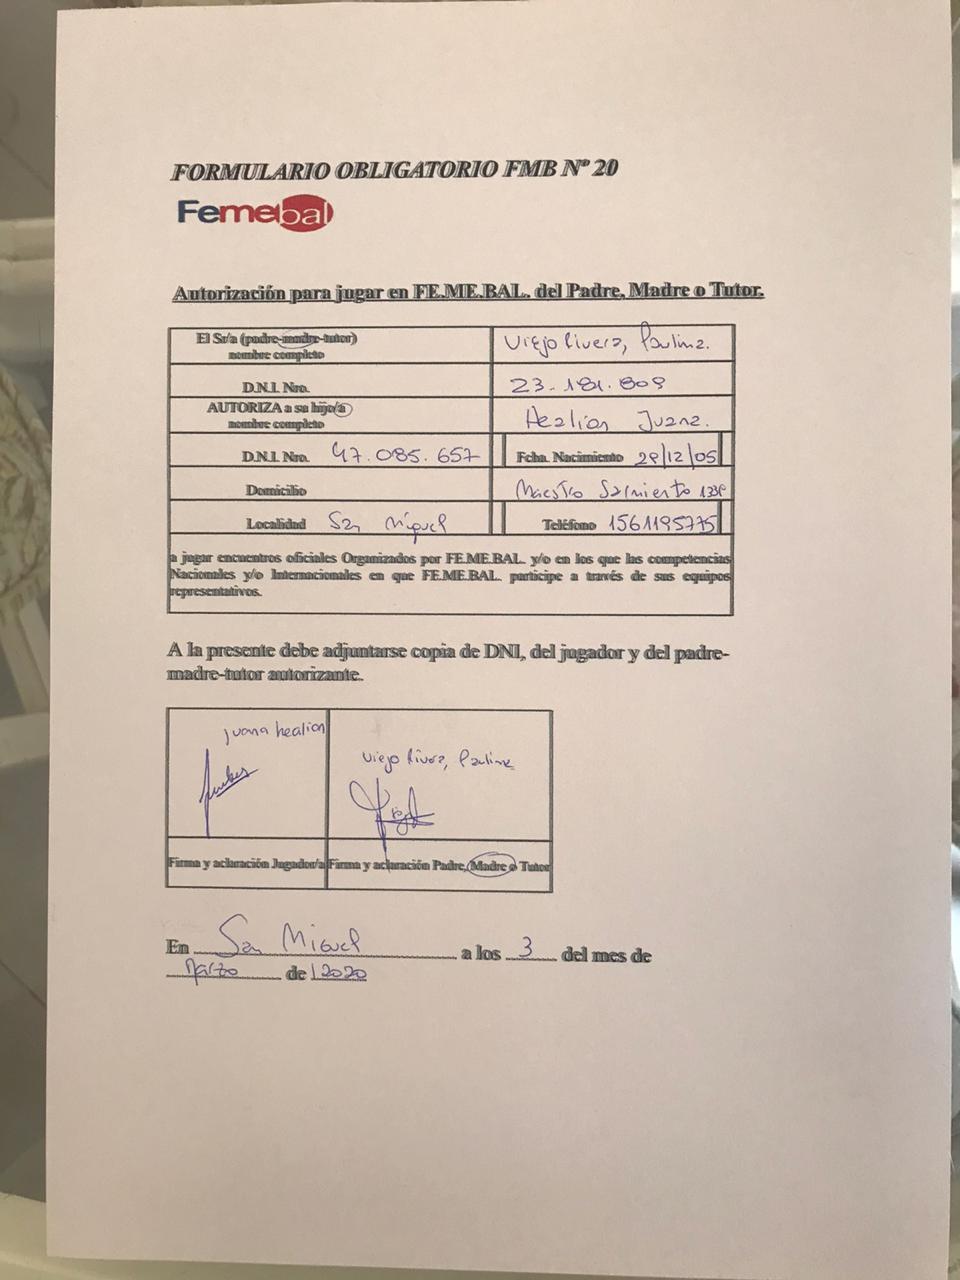 FORMULARIO OBLIGATORIO FMB Nº 20
Femebal
Autorización para jugar en FE.ME.BAL. del Padre, Madre o Tutor.
El Sr/a (padre-madre-tutor) nombre completo Viejo Rivera, Paulina.
D.N.I. Nro. 23.181.809
AUTORIZA a su hijo/a nombre completo Healion Juana.
D.N.I. Nro. 47.085.657 Fcha. Nacimiento 29/12/05
Domicilio Maestro Sarmiento
Localidad San Miguel Teléfono 1561195775
a jugar encuentros oficiales Organizados por FE.ME.BAL. y/o en los que las competencias
Nacionales y/o Internacionales en que FE.ME.BAL. participe a través de sus equipos
representativos.
A la presente debe adjuntarse copia de DNI, del jugador y del padre-
madre-tutor autorizante.
juana healion
Viejo Rivera, Paulina
Firma y aclaración Jugador/a Firma y aclaración Padre, Madre o Tutor
En San Miguel a los 3 del mes de
Marzo de 2020